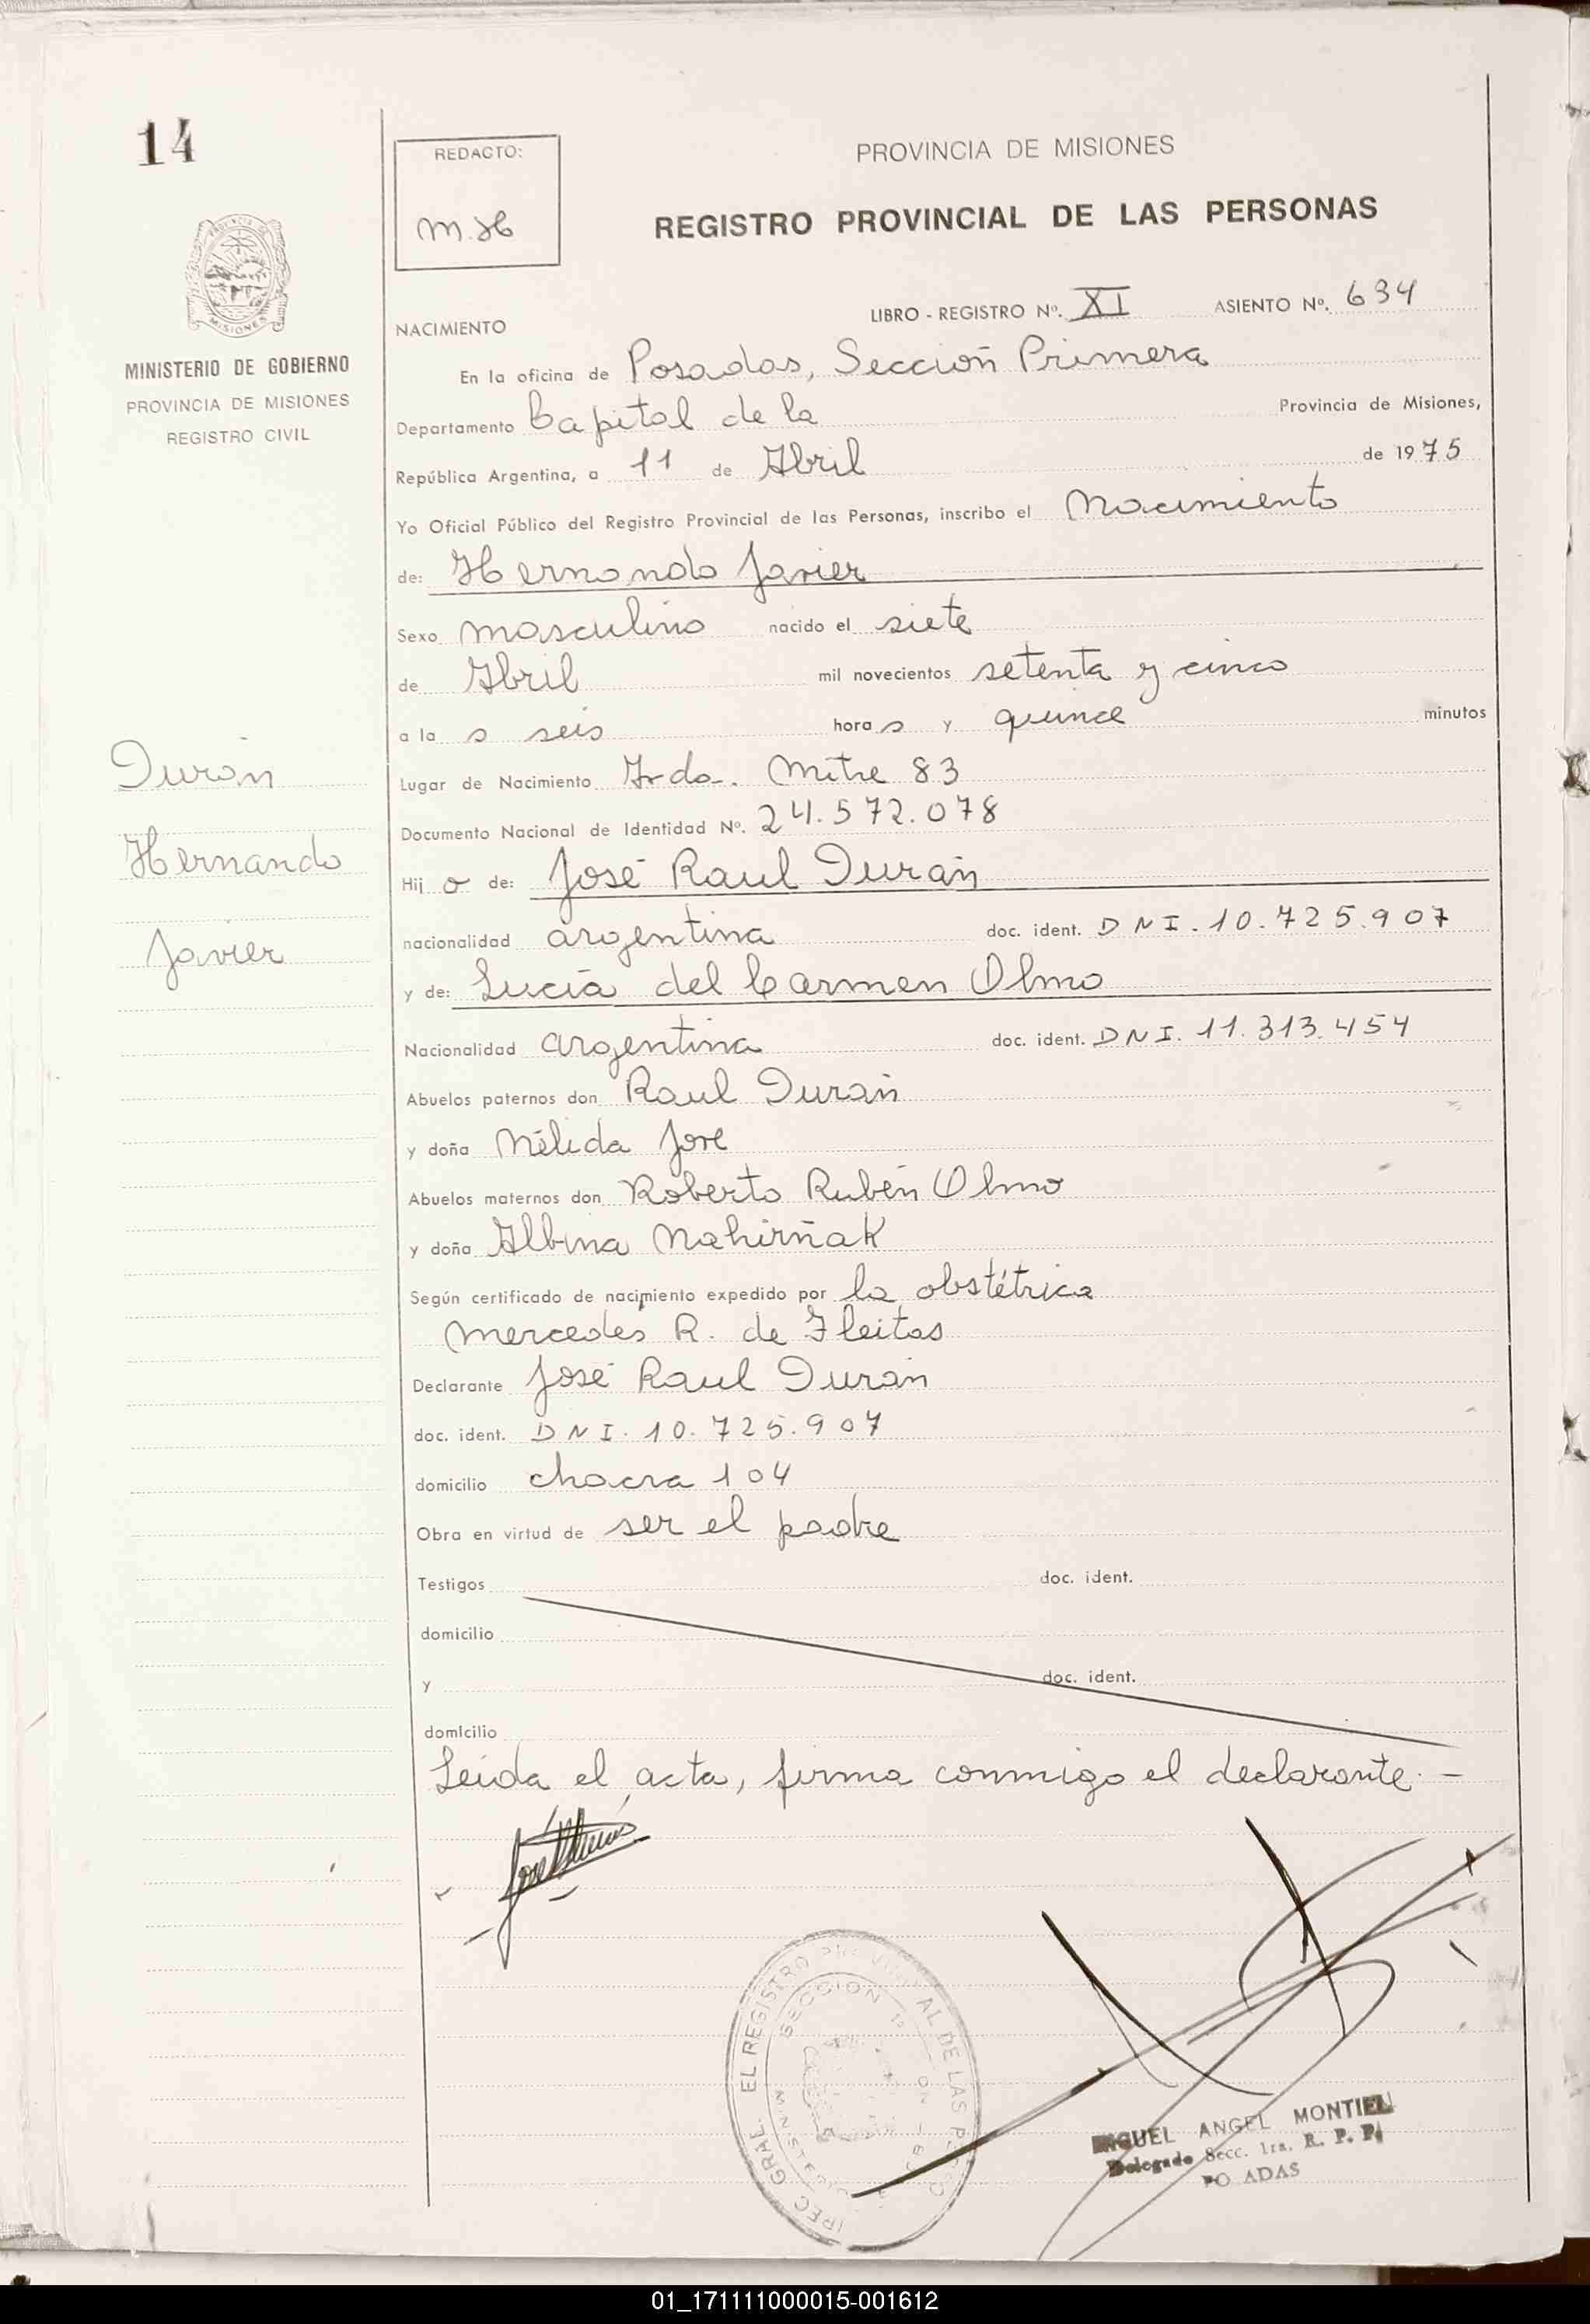 14
REDACTO:
M.H
PROVINCIA DE MISIONES
REGISTRO PROVINCIAL DE LAS PERSONAS
MISIONES
MINISTERIO DE GOBIERNO
PROVINCIA DE MISIONES
REGISTRO CIVIL
LIBRO - REGISTRO Nº. XI ASIENTO Nº. 634
NACIMIENTO
En la oficina de Posadas, Sección Primera
Departamento Capital de la Provincia de Misiones,
República Argentina, a 11 de Abril de 1975
Yo Oficial Público del Registro Provincial de las Personas, inscribo el Nacimiento
de: Hernando Javier
Sexo masculino nacido el siete
de Abril mil novecientos setenta y cinco
a la s seis hora s y quince minutos
Durán
Hernando
Javier
Lugar de Nacimiento Avda. Mitre 83
Documento Nacional de Identidad Nº. 24.572.078
Hij o de: José Raul Durán
nacionalidad argentina doc. ident. DNI. 10.725.907
y de: Lucía del Carmen Olmo
Nacionalidad argentina doc. ident. DNI. 11.313.454
Abuelos paternos don Raul Durán
y doña Nélida Jore
Abuelos maternos don Roberto Rubén Olmo
y doña Albina Nahirñak
Según certificado de nacimiento expedido por la obstétrica
Mercedes R. de Fleitas
Declarante José Raul Durán
doc. ident. DNI. 10.725.907
domicilio chacra 104
Obra en virtud de ser el padre
Testigos doc. ident.
domicilio
y doc. ident.
domicilio
Leida el acta, firma conmigo el declarante. -
EL REGISTRO AL DE LAS
SECCION 1ª
MIGUEL ANGEL MONTIEL
Delegado Secc. 1ra. R. P. P.
PO ADAS
01_171111000015-001612